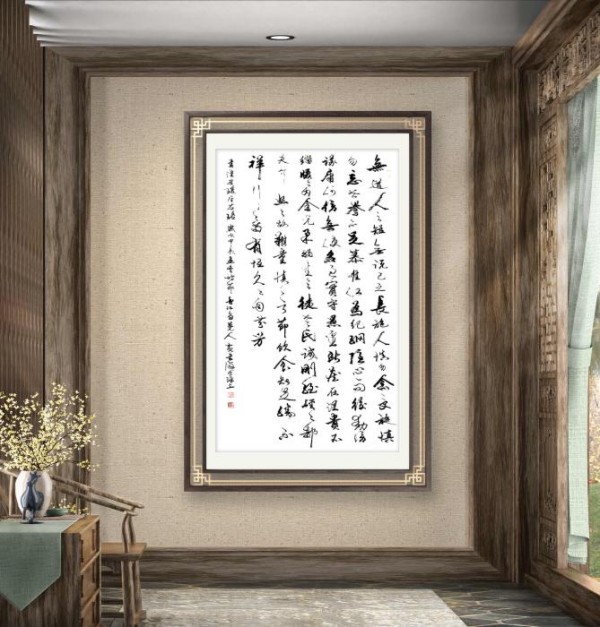 無道人之短無說己之長施人慎勿念受施慎
勿忘世譽不足慕惟仁為紀綱隱心而後動謗
議庸何傷無使名過實守愚聖所臧在涅貴不
緇曖曖內含光柔弱生之徒老氏誡剛強硜硜鄙
夫介悠悠故難量慎言節飲食知足勝不
祥行之苟有恆久久自芬芳
書漢崔瑗座右銘